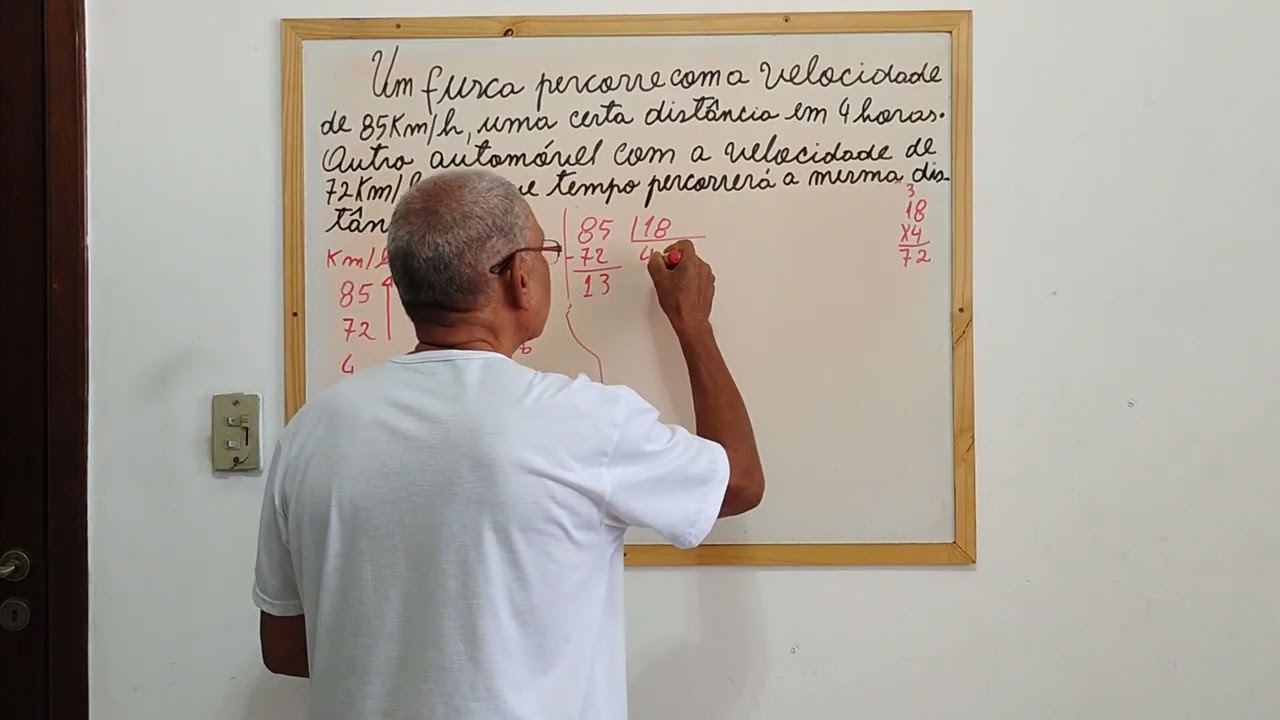 Um fusca percorre com a velocidade
de 85Km/h, uma certa distância em 4 horas.
Outro automóvel com a velocidade de
72Km/ tempo percorrerá a mesma dis-
tân
Km/
85
72
4
85 18
-72 4
13
3
18
X4
72